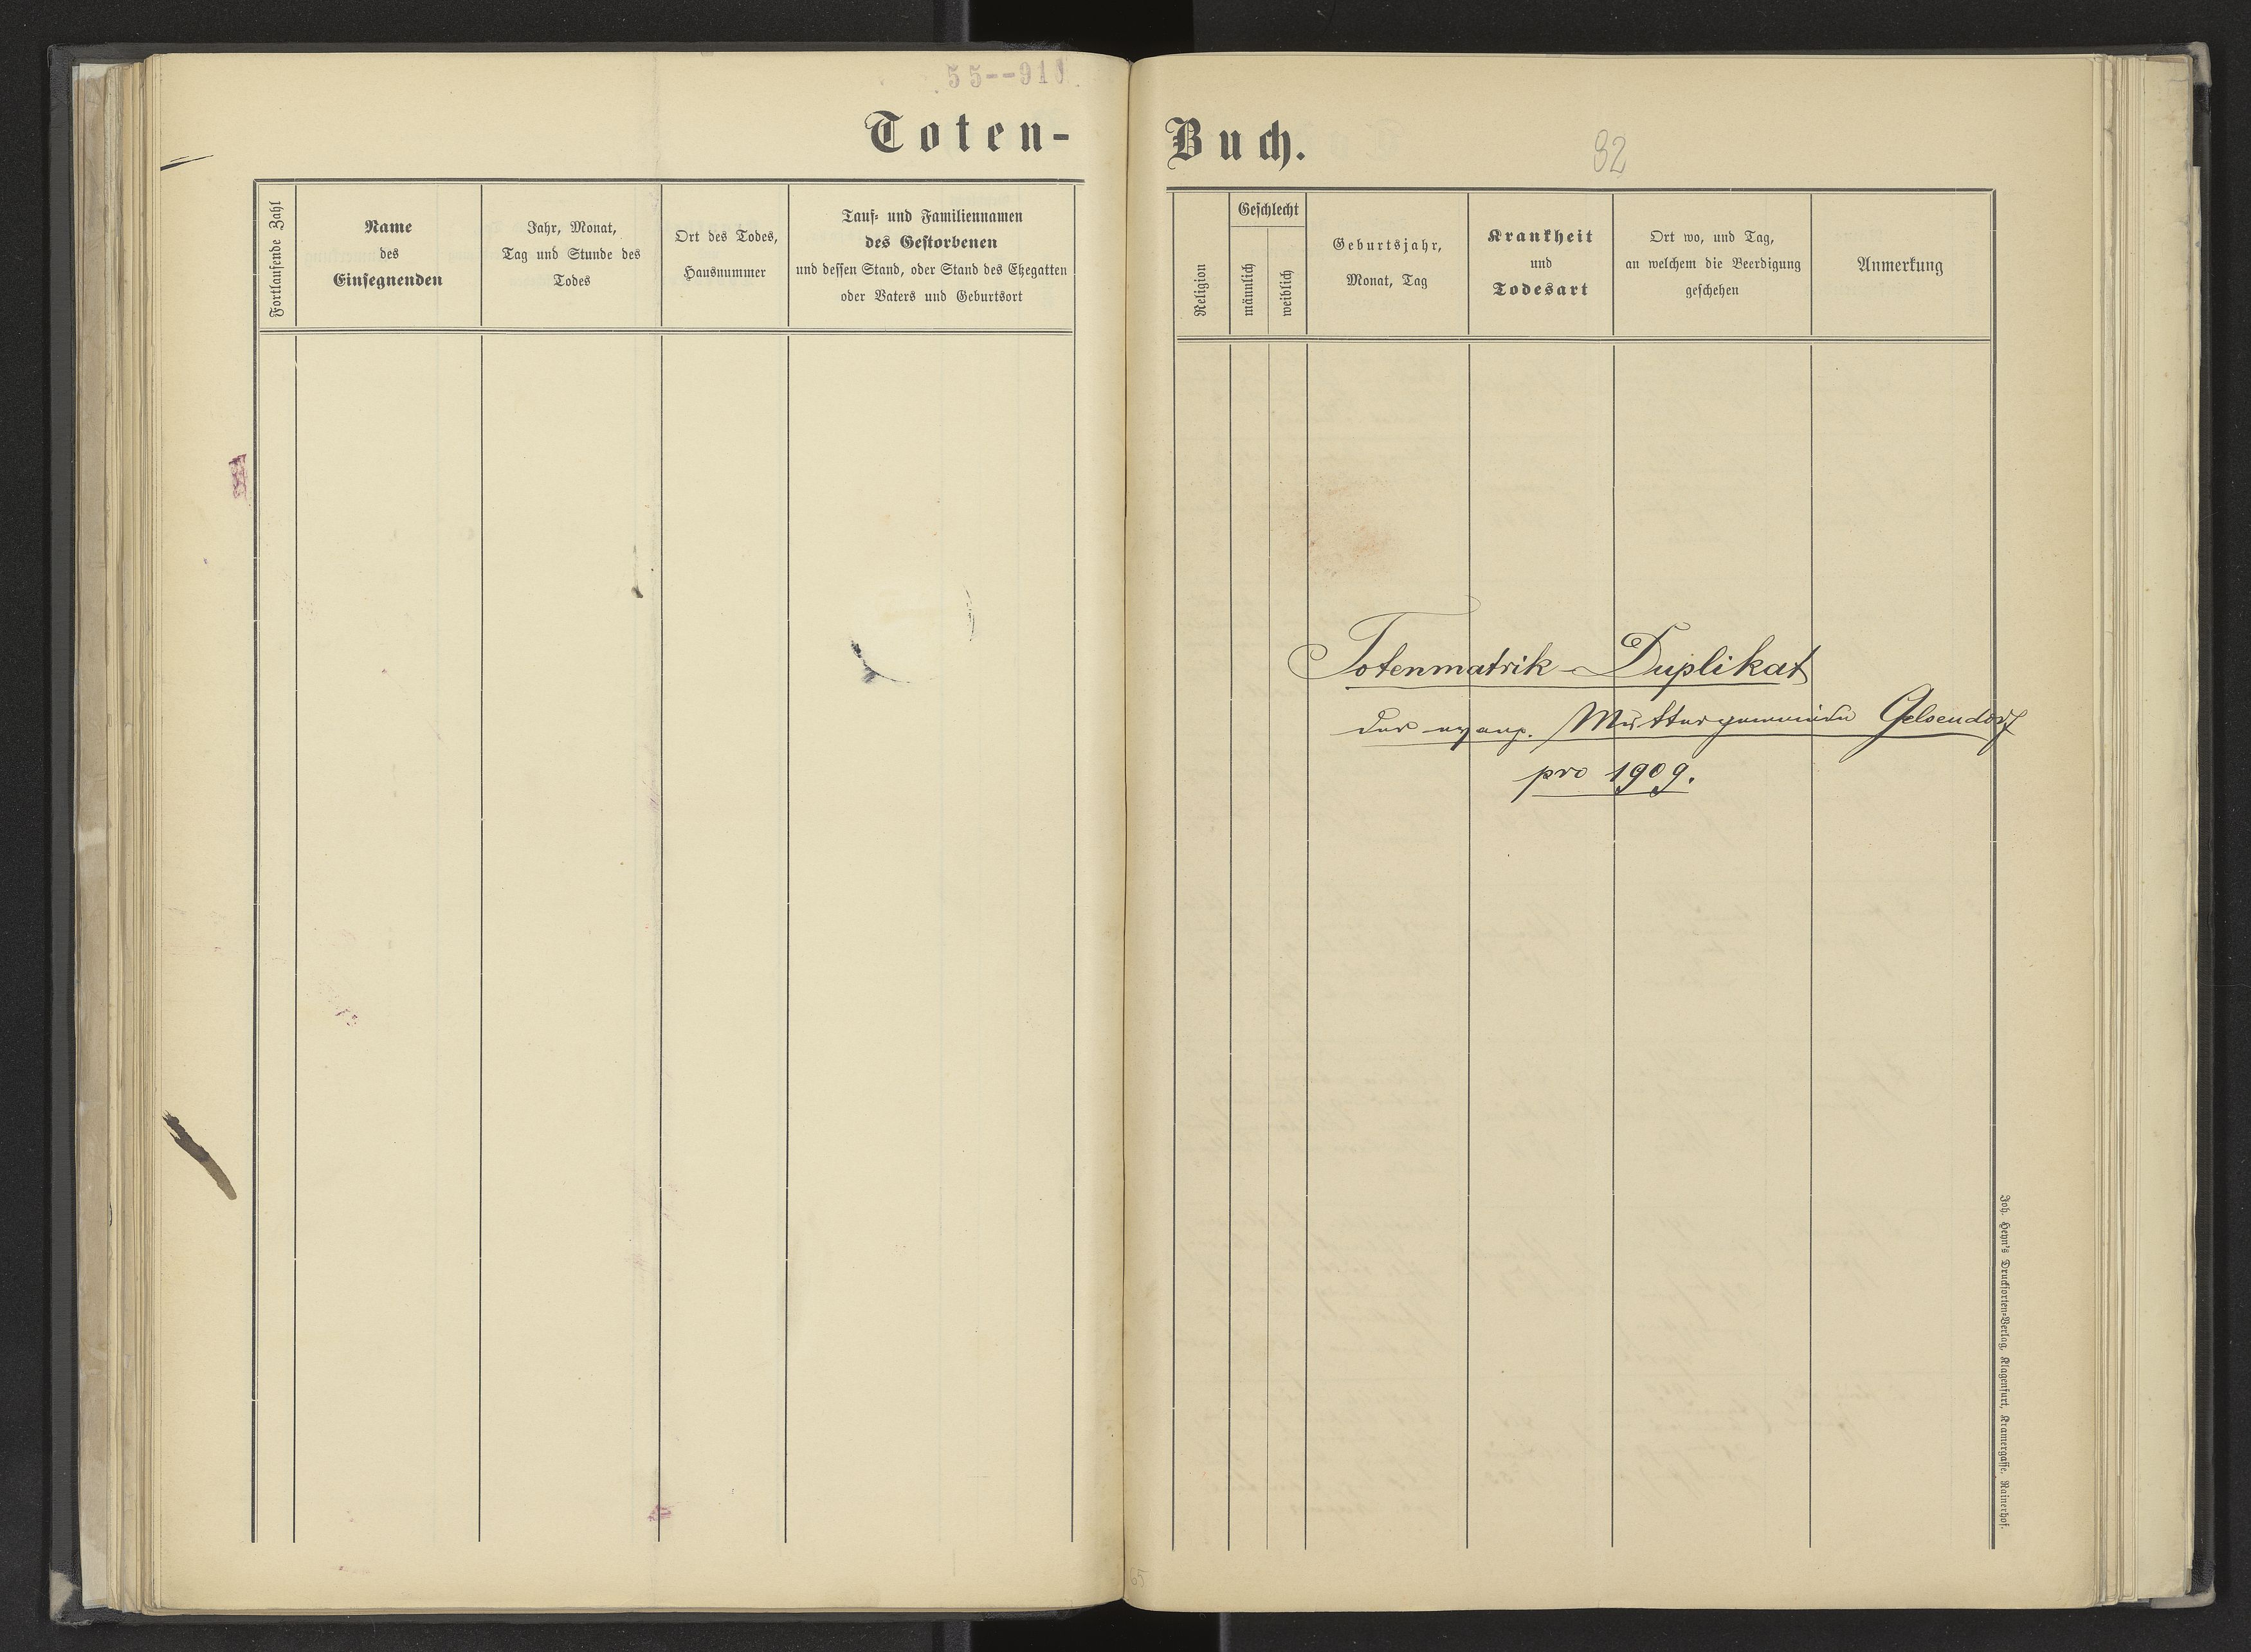 55--910
Toten-
Fortlaufende Zahl
Name
des
Einsegnenden
Jahr, Monat,
Tag und Stunde des
Todes
Ort des Todes,
Hausnummer
Tauf- und Familiennamen
des Gestorbenen
und dessen Stand, oder Stand des Ehegatten
oder Vaters und Geburtsort
Buch.
82
Religion
Geschlecht
männlich
weiblich
Geburtsjahr,
Monat, Tag
Krankheit
und
Todesart
Ort wo, und Tag,
an welchem die Beerdigung
geschehen
Anmerkung
Totenmatrik-Duplikat
der evang. Muttergemeinde Gelsendorf
pro 1909.
Joh. Heyn's Drucksorten-Verlag, Klagenfurt, Kramergasse, Rainerhof.
65